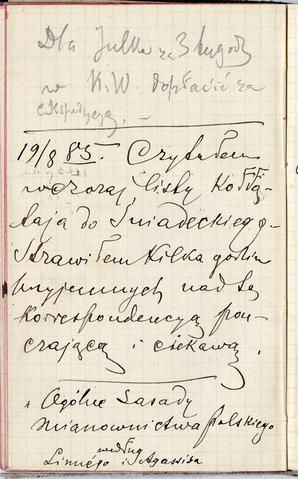 Dla Julka za 3 tygod
w K.W. dopłacić za
ekspedycyą. —
19/8 85. Czytałem
wczoraj listy Kołłą-
taja do Śniadeckiego.
Strawiłem kilka godzin
przyjemnych nad tą
korrespondencyą pou-
czającą i ciekawą.
Ogólne zasady
mianownictwa polskiego
według
Linnégo i Agassiza